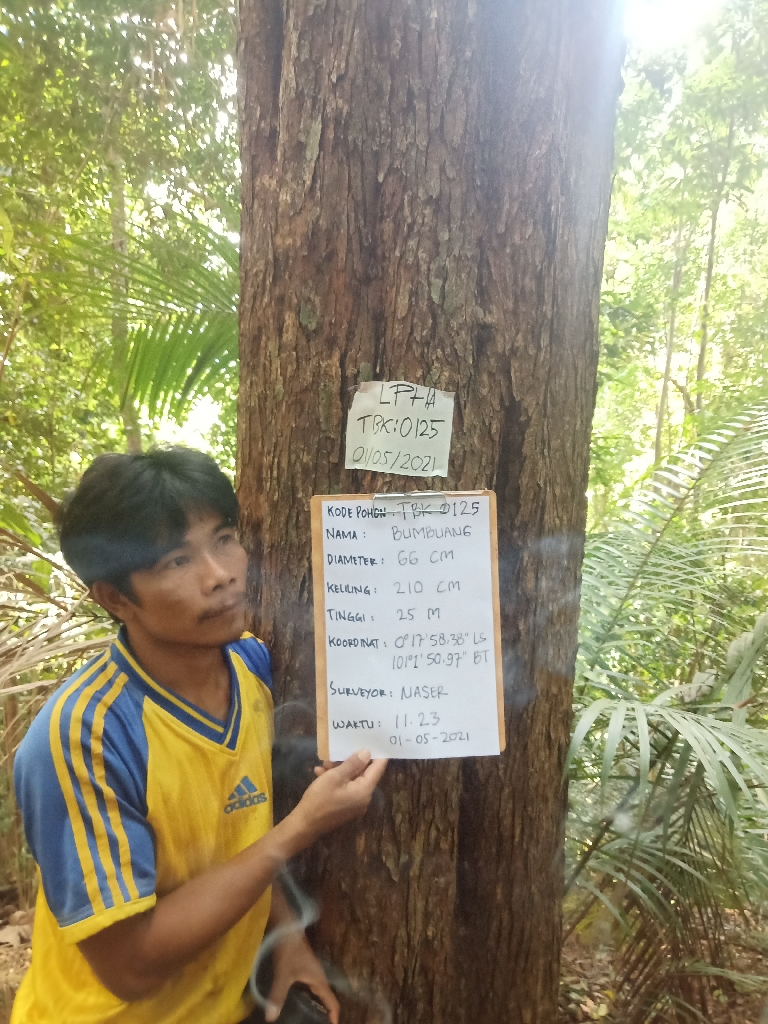 LPHA
TBK:0125
01/05/2021
KODE POHON : TBK 0125
NAMA : BUMBUANG
DIAMETER : 66 CM
KELILING : 210 CM
TINGGI : 25 M
KOORDINAT : 0°17'58.38" LS
101°1'50.97" BT
SURVEYOR : NASER
WAKTU : 11.23
01-05-2021
adidas